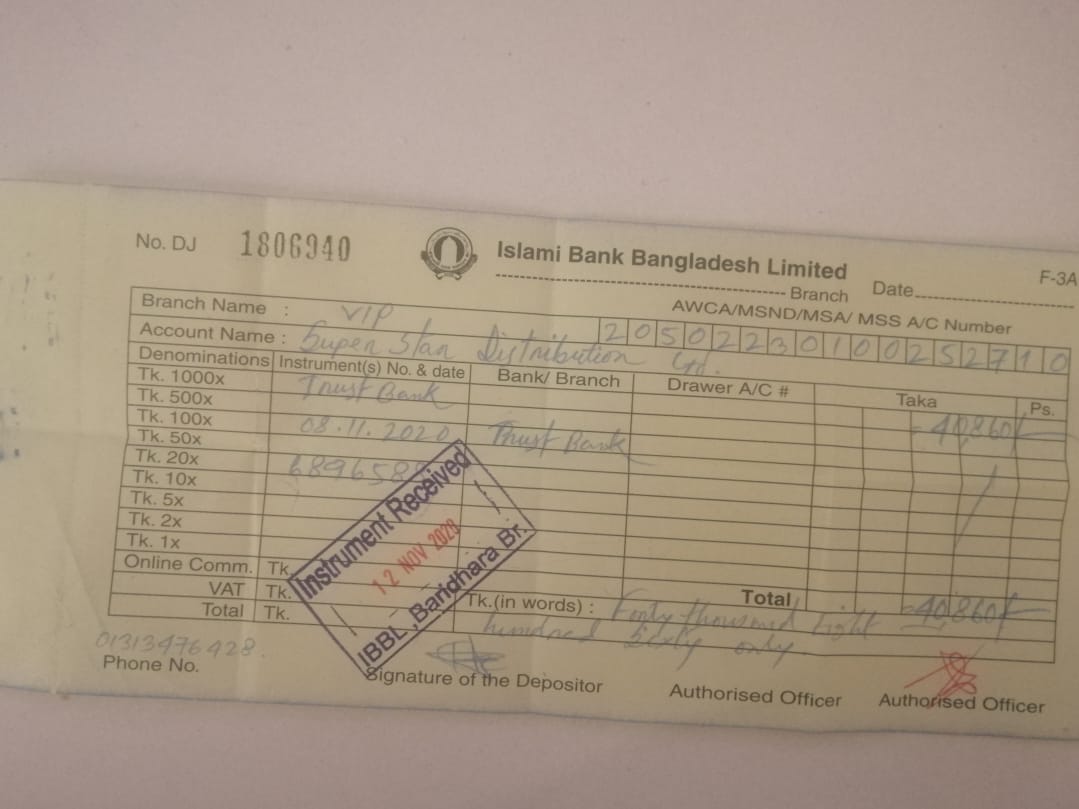 No. DJ 1806940 Islami Bank Bangladesh Limited F-3A
Branch Date
Branch Name : VIP AWCA/MSND/MSA/ MSS A/C Number
Account Name : Super Star Distribution Ltd. 20502230100252710
Denominations Instrument(s) No. & date Bank/ Branch Drawer A/C # Taka Ps.
Tk. 1000x Trust Bank =40,860/-
Tk. 500x
Tk. 100x 08.11.2020 Trust Bank
Tk. 50x
Tk. 20x 68965
Tk. 10x
Tk. 5x
Tk. 2x
Tk. 1x
Online Comm. Tk.
VAT Tk. Total =40,860/-
Total Tk. Tk.(in words) : Forty thousand Eight
hundred Sixty only.
Instrument Received
12 NOV 2020
IBBL, Baridhara Br.
01313476428
Phone No. Signature of the Depositor Authorised Officer Authorised Officer